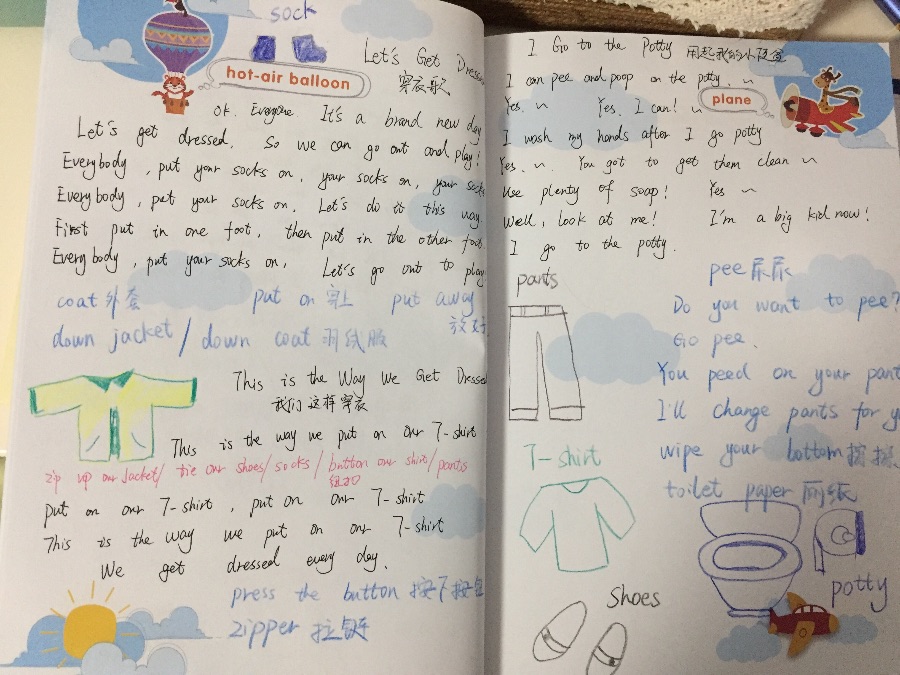 sock
Let's Get Dresse
穿衣歌
hot-air balloon
Ok. Everyone It's a brand new day
Let's get dressed. So we can go out and play!
Everybody, put your socks on, your socks on, your socks
Everybody, put your socks on. Let's do it this way.
First put in one foot, then put in the other foot
Everybody, put your socks on, Let's go out to play
coat 外套 put on 穿上 put away 放好
down jacket / down coat 羽绒服
This is the Way We Get Dresse
我们这样穿衣
This is the way we put on our T-shirt
zip up our jacket/ tie our shoes/ socks/ button our shirt/ pants
纽扣
put on our T-shirt, put on our T-shirt
This is the way we put on our T-shirt
We get dressed every day.
press the button 按下按钮
zipper 拉链
I Go to the Potty 用起我的小便盆
I can pee and poop on the potty. ~
Yes. ~ Yes. I can! ~
plane
I wash my hands after I go potty
Yes. ~. You got to get them clean ~
Use plenty of soap! Yes ~
Well, look at me! I'm a big kid now!
I go to the potty.
pants
pee 尿尿
Do you want to pee?
Go pee.
You peed on your pant
I'll change pants for y
wipe your bottom 擦擦
toilet paper 厕纸
T-shirt
potty
Shoes